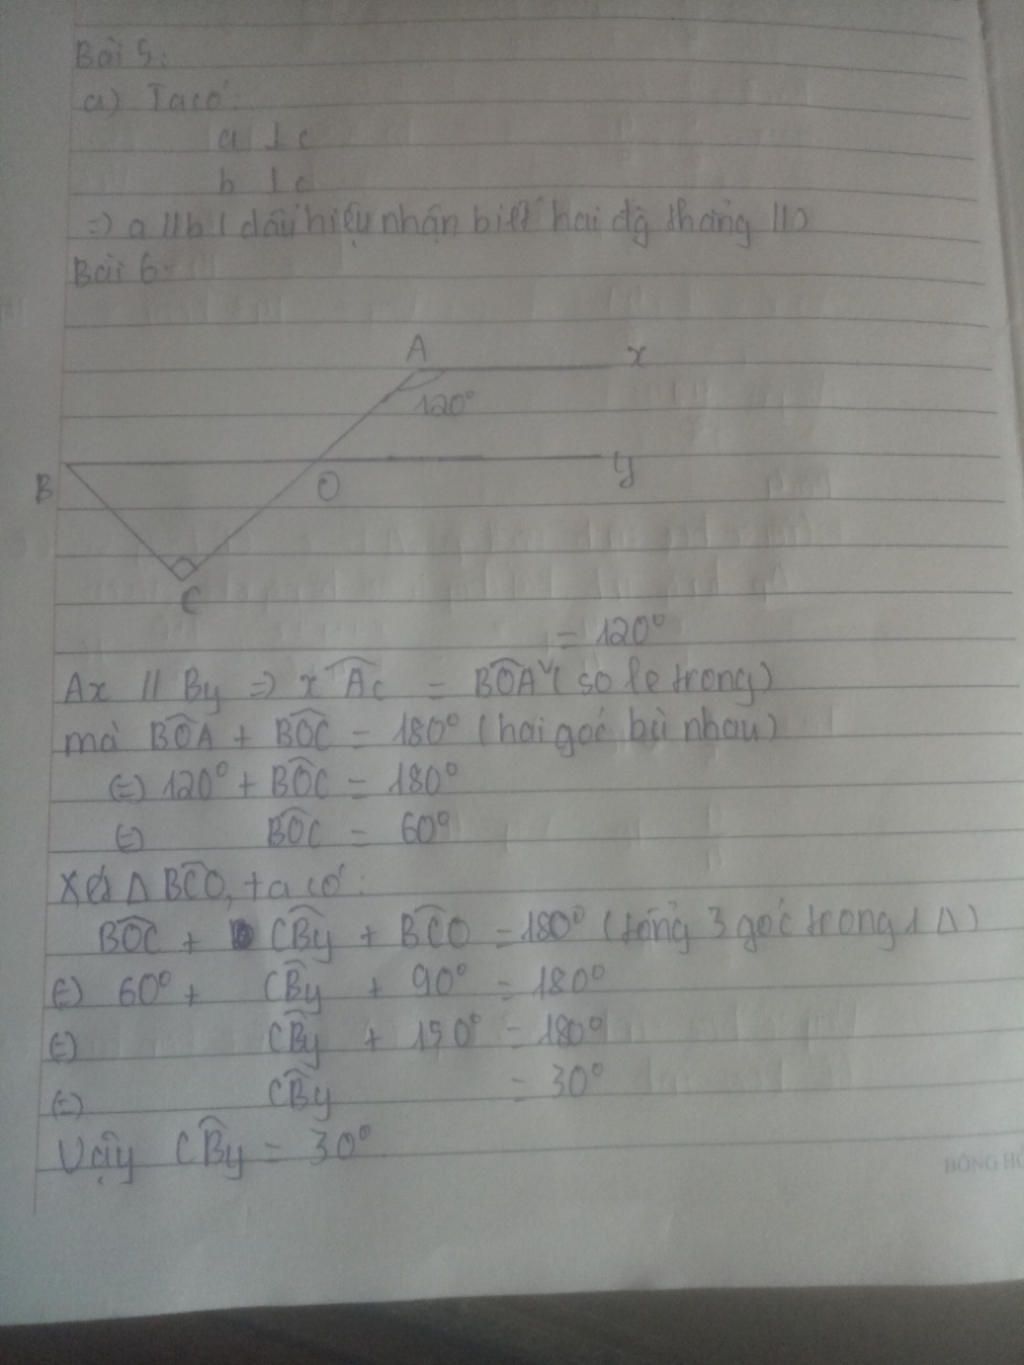 Bài 5:
a) Ta có:
a ⊥ c
b ⊥ c
=> a // b ( dấu hiệu nhận biết hai đg thẳng //)
Bài 6:
A x
120°
B O y
C
= 120°
Ax // By => xAc = BOA ( so le trong)
mà BOA + BOC = 180° (hai góc bù nhau)
(=) 120° + BOC = 180°
(=) BOC = 60°
Xét Δ BCO, ta có:
BOC + CBy + BCO = 180° (tổng 3 góc trong 1 Δ)
(=) 60° + CBy + 90° = 180°
(=) CBy + 150° = 180°
(=) CBy = 30°
Vậy CBy = 30°